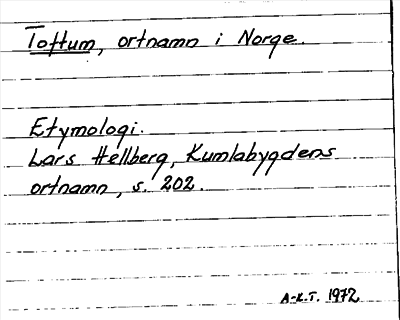 Toftum, ortnamn i Norge.
Etymologi.
Lars Hellberg, Kumlabygdens
ortnamn, s. 202.
A-L.T. 1972